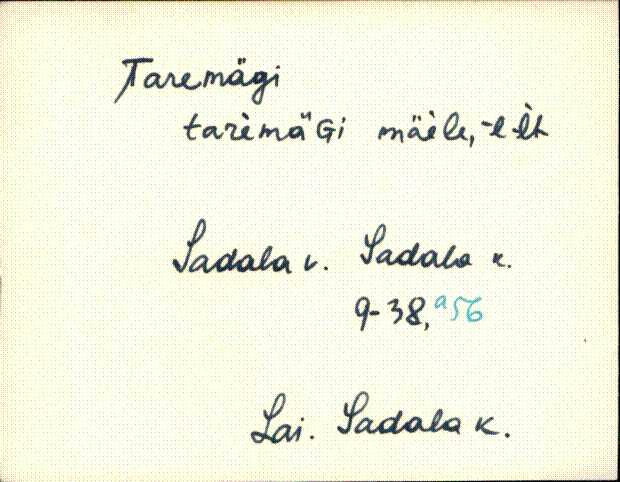 Taremägi
tarèmäGi mäèle, -l -lt
Sadala v. Sadala k.
9-38, a56
Lai. Sadala k.